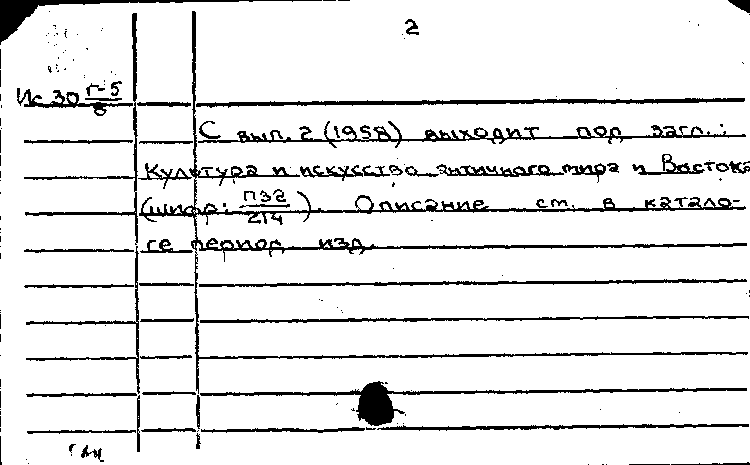 2
Ис 30 Г-5/8
С вып. 2 (1958) выходит под загл.:
Культура и искусство античного мира и Востока
(шифр: П32/214). Описание см. в катало-
ге период. изд.